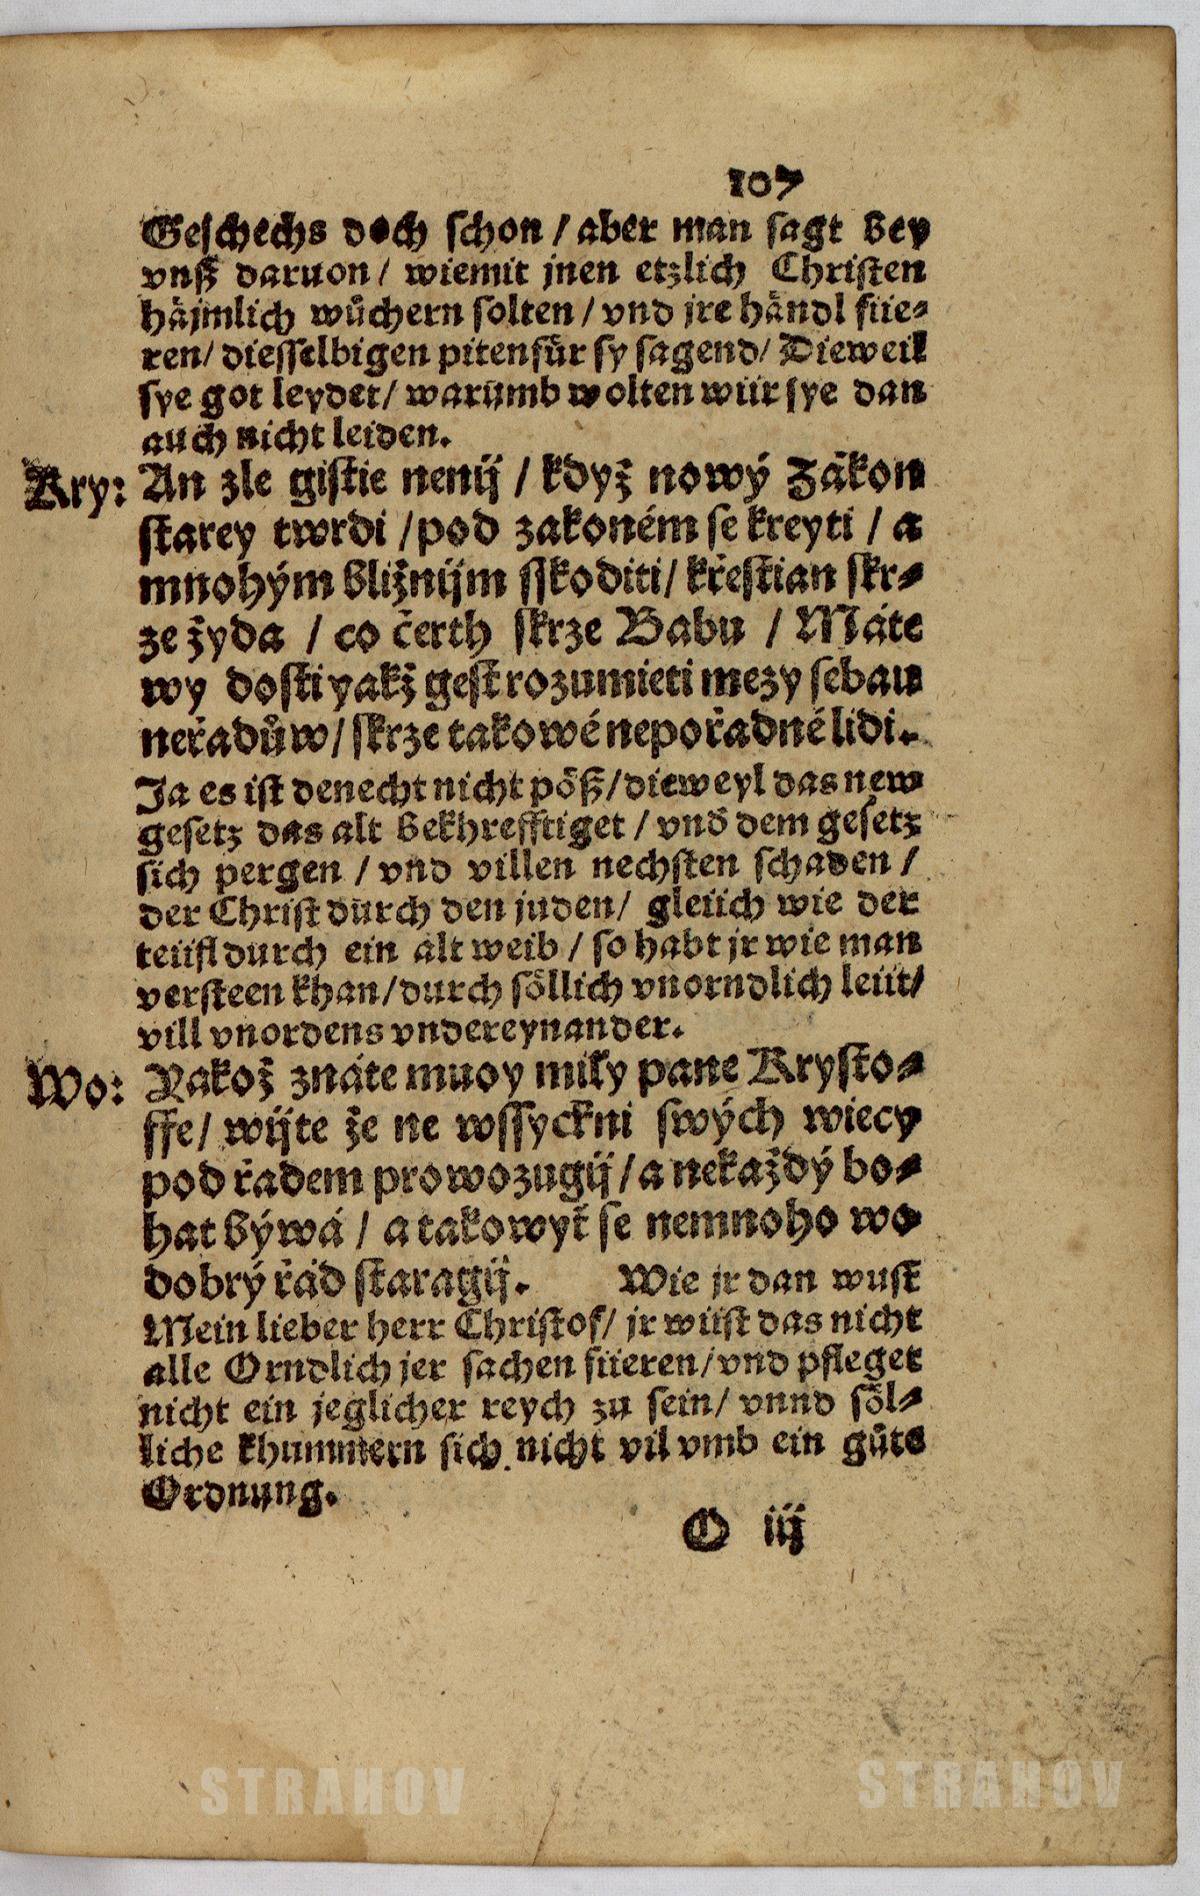 107
Geschechs doch schon / aber man sagt bey
vnß daruon / wiemit jnen etzlich Christen
häjmlich wůchern solten / vnd jre händl füe⸗
ren / diesselbigen pitenfür sy sagend / Dieweil
sye got leydet / warumb wolten wür sye dan
auch nicht leiden.
Kry: An zle gistie nenij / když nowý Zákon
starey twrdi / pod zakoném se kreyti / a
mnohým bližnijm sskoditi / křestian skr⸗
ze žyda / co čerth skrze Babu / Máte
wy dosti yakž gest rozumieti mezy sebau
neřadůw / skrze takowé nepořadné lidi.
Ja es ist denecht nicht pöß / dieweyl das new
gesetz das alt bekhrefftiget / vnd dem gesetz
sich pergen / vnd villen nechsten schaden /
der Christ durch den juden / gleüch wie der
teüfl durch ein alt weib / so habt jr wie man
versteen khan / durch söllich vnorndlich leüt /
vill vnordens vndereynander.
Wo: Yakož znáte muoy mily pane Krysto⸗
ffe / wijte že ne wssyckni swých wiecy
pod řadem prowozugij / a nekaždý bo⸗
hat býwá / a takowyť se nemnoho wo
dobrý řád staragij. Wie jr dan wust
Mein lieber herr Christof / jr wüst das nicht
alle Orndlich jer sachen füeren / vnd pfleget
nicht ein jeglicher reych zu sein / vnnd söl⸗
liche khummern sich nicht vil vmb ein gůte
Ordnung.
O iij
STRAHOV
STRAHOV